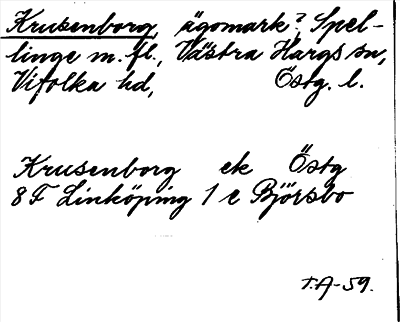 Krusenborg, ägomark? Spel-
linge m. fl., Västra Hargs sn,
Vifolka hd, Östg. l.
Krusenborg ek Östg
8 F Linköping 1 e Björsbo
T.A-59.